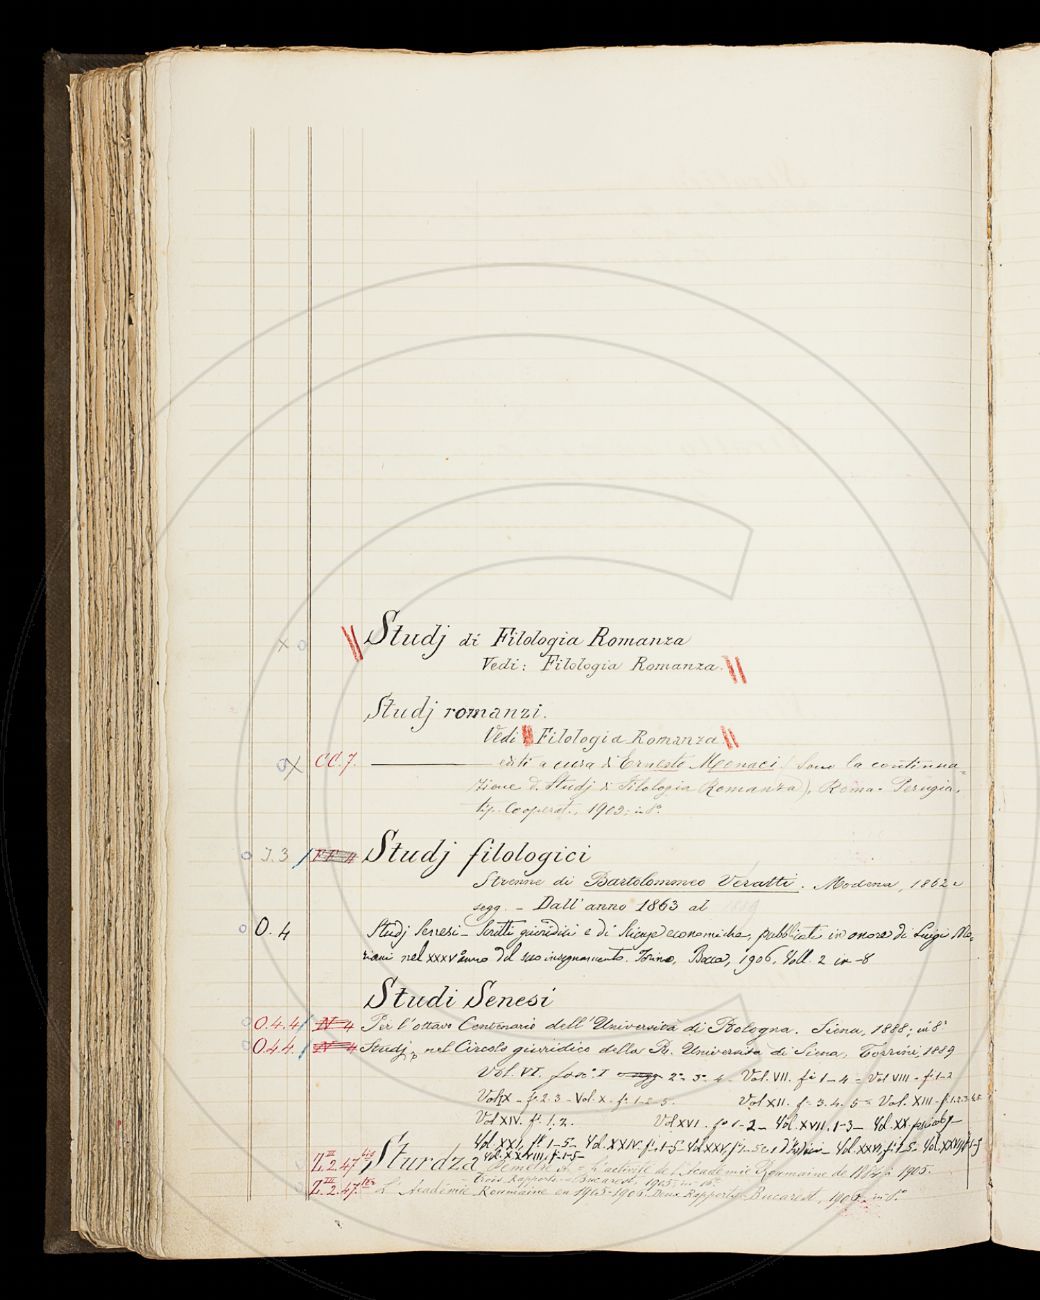 Studj di Filologia Romanza
Vedi: Filologia Romanza.
Studj romanzi.
Vedi Filologia Romanza
CC.7. editi a cura di Ernesto Monaci (Sono la continua-
zione d. Studj di Filologia Romanza), Roma-Perugia,
tip. Cooperat., 1903; in 8°
J.3 Studj filologici
Strenne di Bartolommeo Veratti. Modena, 1862 e
segg. - Dall'anno 1863 al 1889
O.4 Studj Senesi - Scritti giuridici e di Scienze economiche, pubblicati in onore di Luigi Mo-
riani nel XXXV anno del suo insegnamento. Torino, Bocca, 1906, Voll. 2 in-8
Studi Senesi
O.4.4 N 4 Per l'ottavo Centenario dell'Università di Bologna. Siena, 1888; in 8°
O.4.4. N 4 Studj nel Circolo giuridico della R. Università di Siena, Torrini, 1889
Vol. VI. fasc. I 2° 3° 4. Vol. VII. fi 1-4 = Vol VIII - f. 1-2
Vol IX - f. 2.3 - Vol. X - f. 1-2-5. Vol XII. f. 3.4.5 = Vol. XIII - f. 1.2.3.4.5
Vol XIV. f. 1.2. Vol XVI. 1-2 - Vol. XVII. 1-3 - Vol. XX
Vol. XXI. f. 1-5 - Vol. XXIV. f. 1-5 Vol XXV. Vol. XXVI. f. 1-5 - Vol. XXVII f 1-5
Vol. XXVIII. f. 1-5
Z.III.2.47 Sturdza Demetre A. = L'activité de l'Académie Roumaine de 1884 à 1905.
Trois Rapports - Bucarest, 1905; in 16°
Z.III.2.47. L'Académie Roumaine en 1905-1906. Deux Rapports. Bucarest, 1906, in 8°